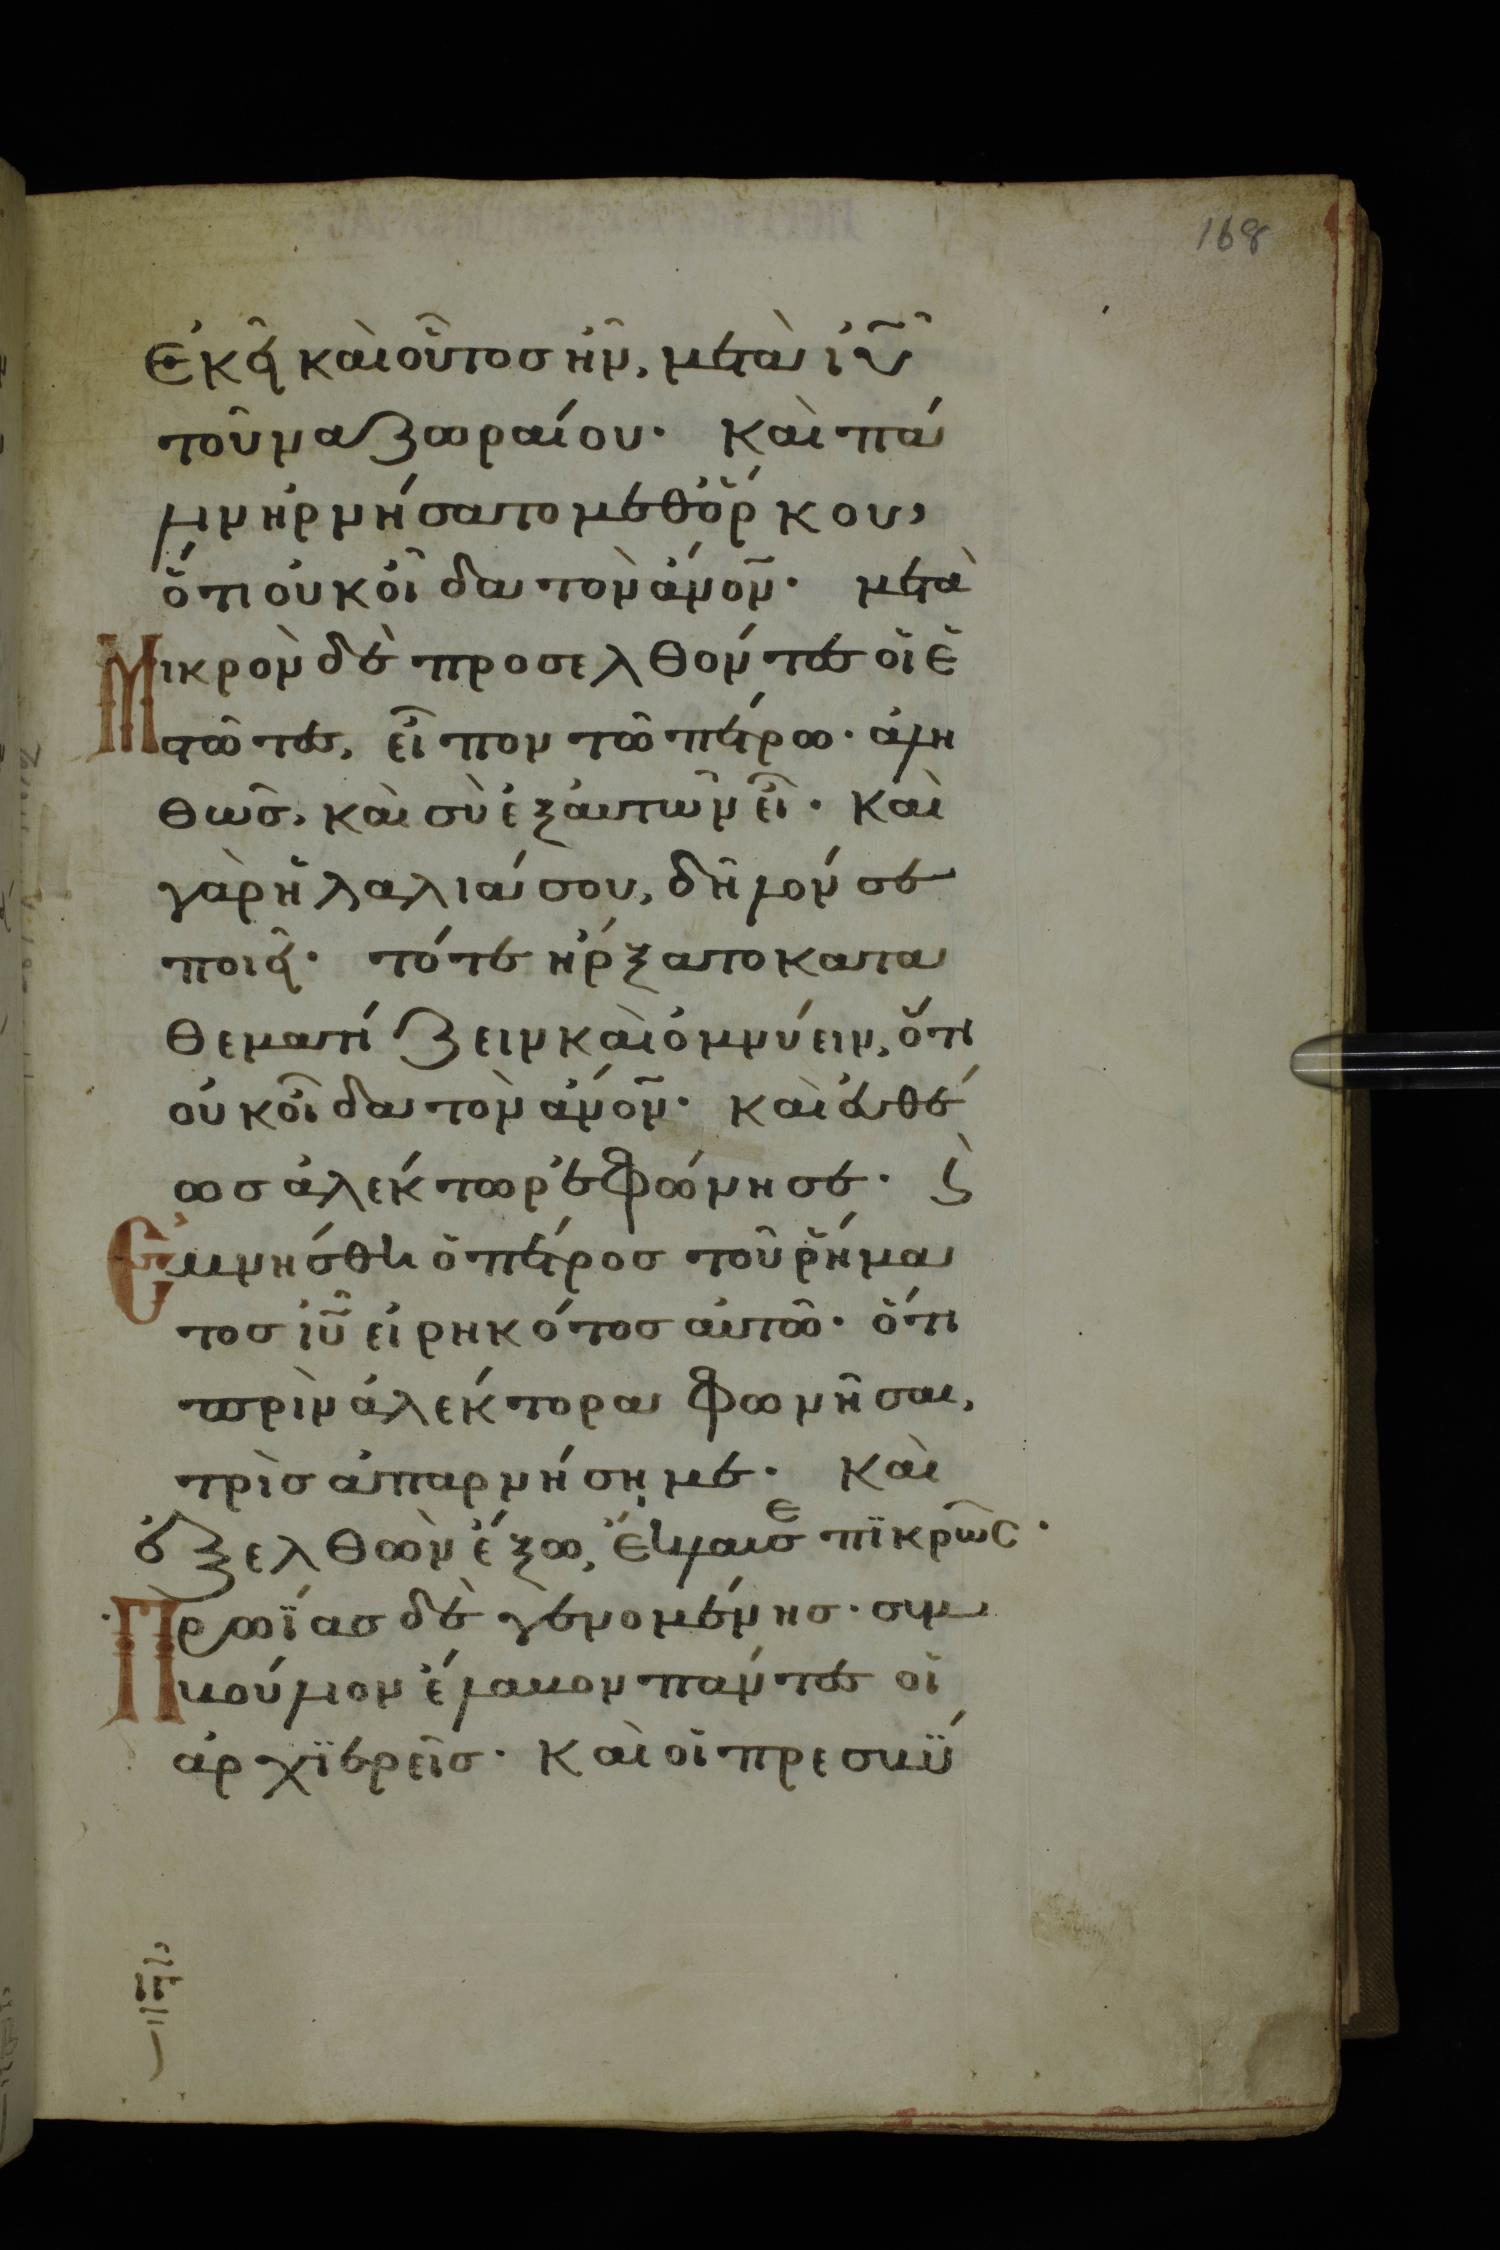 168
ἐκεῖ καὶ οὗτος ἦν, μετὰ ἰῦ
τοῦ ναζωραίου· καὶ πά
λιν ἠρνήσατο μεθ ὅρκου,
ὅτι οὐκ οἶδα τὸν ἄνον· μετὰ
μικρὸν δὲ προσελθόντες οἱ ἑ
στῶτες, εἶπον τῶ πέτρω· ἀλη
θῶς, καὶ σὺ ἐξ αὐτῶν εἶ· καὶ
γὰρ ἡ λαλιά σου, δῆλόν σε
ποιεῖ· τότε ἤρξατο κατα
θεματίζειν καὶ ὀμνύειν, ὅτι
οὐκ οἶδα τὸν ἄνον· καὶ εὐθέ
ως ἀλέκτωρ ἐφώνησε· ϛ
ἐμνήσθη ὁ πέτρος τοῦ ῥήμα
τος ἰῦ εἰρηκότος αὐτῶ· ὅτι
πρὶν ἀλέκτορα φωνῆσαι,
τρὶς ἀπαρνήσῃ με· καὶ
ἐξελθὼν ἔξω, ἔκλαυσε πϊκρῶς·
Πρωΐας δὲ γενομένης· συμ
βούλιον ἔλαβον πάντες οἱ
ἀρχϊερεῖς· καὶ οἱ πρεσβύ